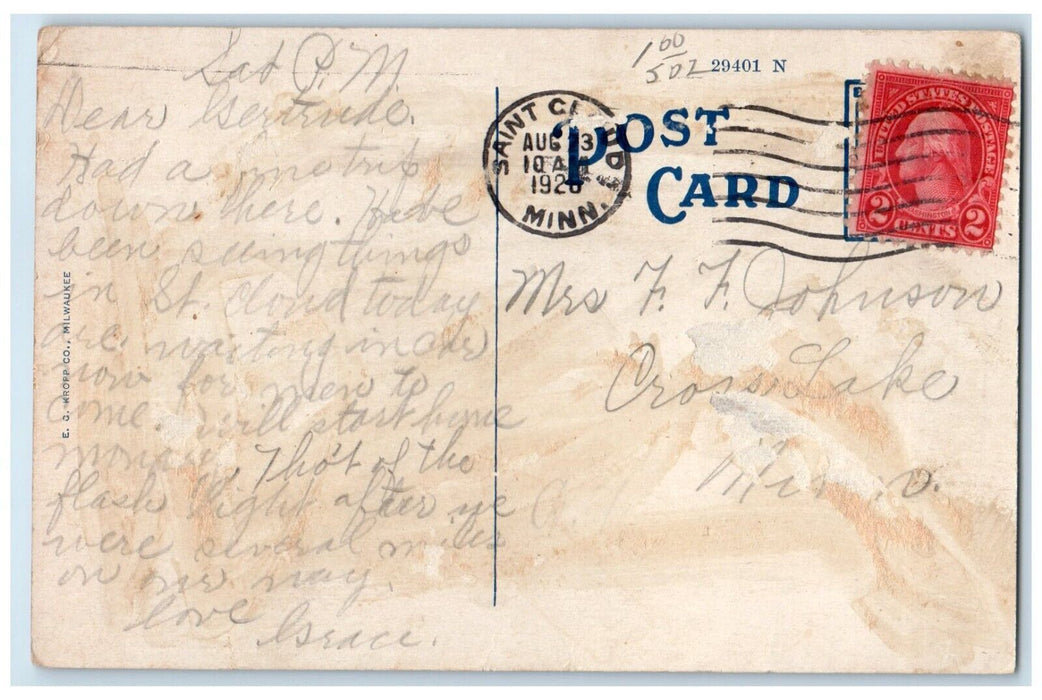 Sat P.M.
Dear Gertrude.
Had a nice trip
down there. Have
been seeing things
in St. Cloud today
are waiting in car
now for men to
come. Will start home
monday. Tho't of the
flash light after we
were several miles
on our way.
Love
Grace.
E. C. KROPP CO., MILWAUKEE
1 00
502
29401 N
POST
CARD
SAINT CLOUD
AUG 23
10 A
192
MINN.
UNITED STATES POSTAGE
WASHINGTON
2 CENTS 2
Mrs F. F. Johnson
Cross Lake